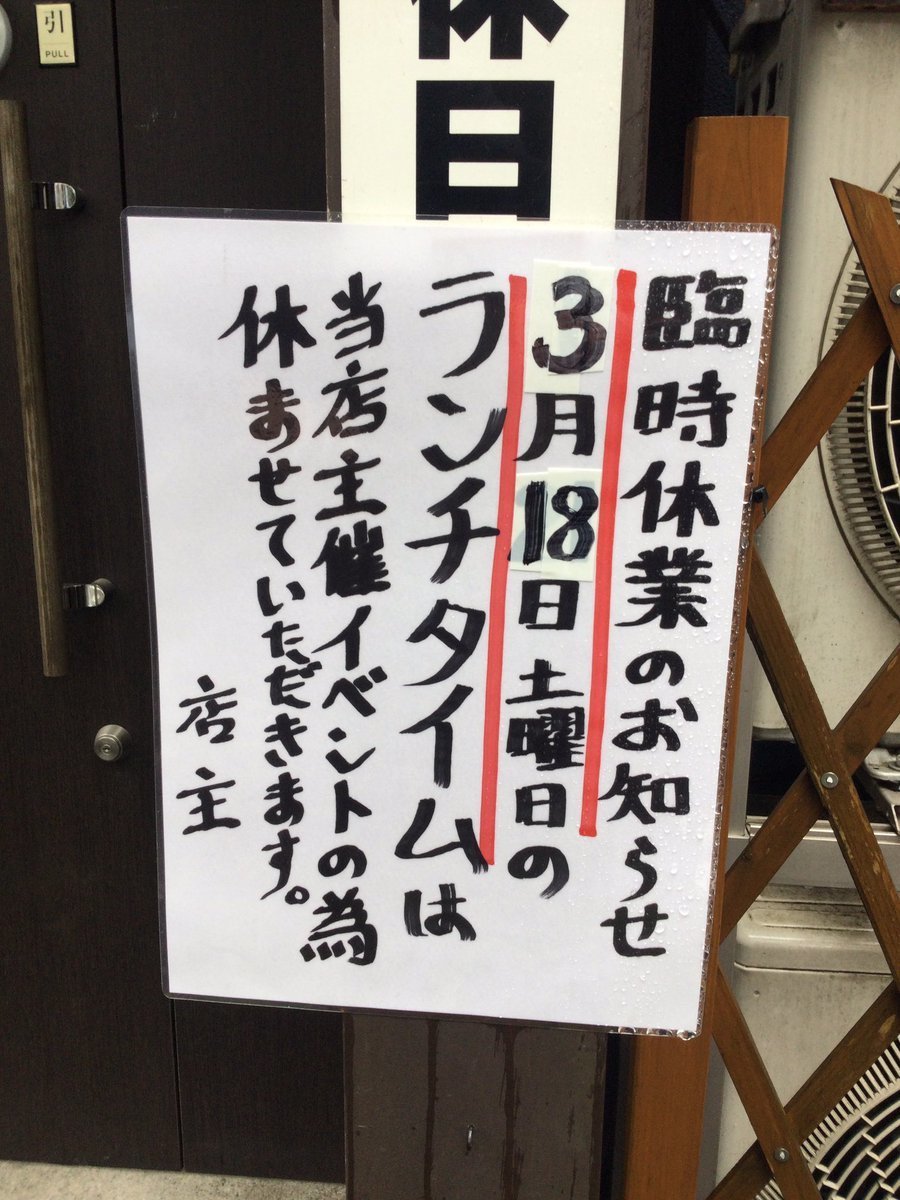 引
PULL
休日
臨時休業のお知らせ
3月18日土曜日の
ランチタイムは
当店主催イベントの為
休ませていただきます。
店主